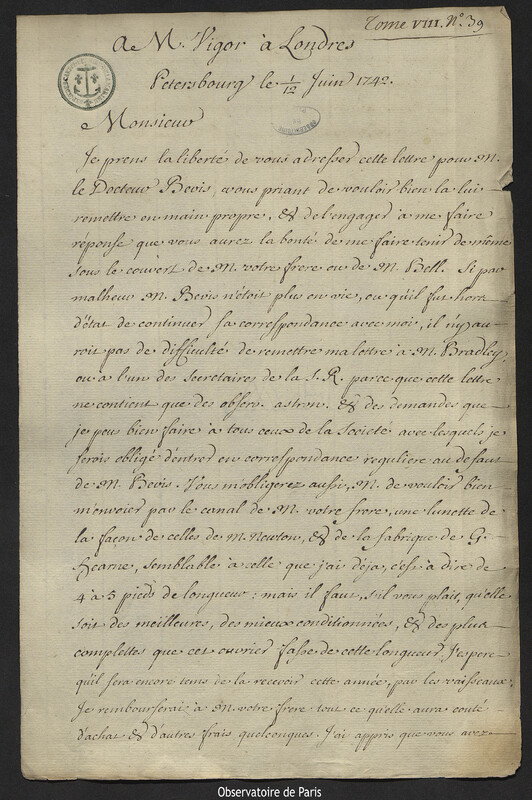 Tome VIII. N.º 39
A M. Vigor à Londres
Petersbourg le 1/12 Juin 1742.
Monsieur
Je prens la liberté de vous adresser cette lettre pour M.
le Docteur Bevis, vous priant de vouloir bien la lui
remettre en main propre, & de l'engager à me faire
réponse que vous aurez la bonté de me faire tenir de même
sous le couvert de M. votre frere ou de M. Bell. Si par
malheur M. Bevis n'étoit plus en vie, ou qu'il fut hors
d'état de continuer sa correspondance avec moi, il n'y au-
roit pas de difficulté de remettre ma lettre à M. Bradley
ou à l'un des secretaires de la S. R. parce que cette lettre
ne contient que des observ. astron. & des demandes que
je peus bien faire à tous ceux de la Societé avec lesquels je
serois obligé d'entrer en correspondance reguliere au defaut
de M. Bevis. Vous m'obligerez aussi, M. de vouloir bien
m'envoier par le canal de M. votre frere, une lunette de
la façon de celles de M. Newton, & de la fabrique de G.
Hearne, semblable à celle que j'ai déja, c'est à dire de
4 à 5 pieds de longueur : mais il faut, s'il vous plait, qu'elle
soit des meilleures, des mieux conditionnées, & des plus
complettes que cet ouvrier fasse de cette longueur. J'espere
qu'il sera encore tems de la recevoir cette année, par les vaisseaux.
Je rembourserai à M. votre frere tout ce qu'elle aura couté
d'achat & d'autres frais quelconques. J'ai appris que vous avez
Observatoire de Paris